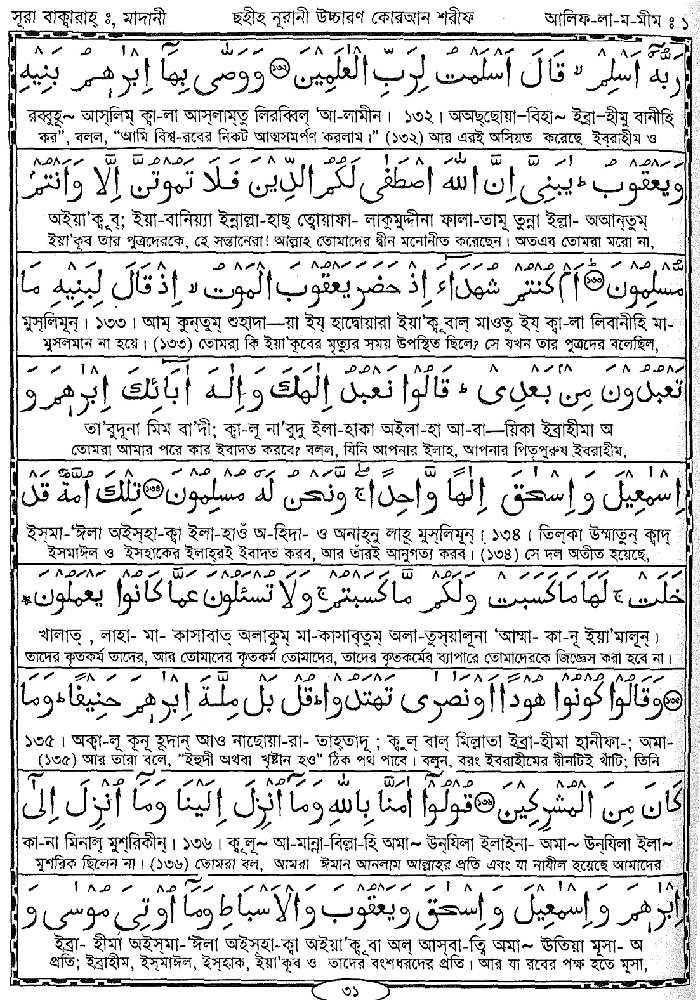 সূরা বাক্বারাহ্ ঃ মাদানী ছহীহ নূরানী উচ্চারণ কোরআন শরীফ আলিফ-লা-ম-মীম ঃ ১
رَبُّهٗٓ اَسْلِمْ ۙ قَالَ اَسْلَمْتُ لِرَبِّ الْعٰلَمِيْنَ ﴿۱۳۱﴾ وَوَصّٰى بِهَآ اِبْرٰهٖمُ بَنِيْهِ
রব্বুহূ~ আস্লিম্ ক্বা-লা আস্লাম্তু লিরব্বিল্ 'আ-লামীন। ১৩২। অঅছ্ছোয়া-বিহা~ ইব্রা-হীমু বানীহি
কর", বলল, "আমি বিশ্ব-রবের নিকট আত্মসমর্পণ করলাম।" (১৩২) আর এরই অসিয়ত করেছে ইবরাহীম ও
وَيَعْقُوْبُ ؕ يٰبَنِىَّ اِنَّ اللّٰهَ اصْطَفٰى لَكُمُ الدِّيْنَ فَلَا تَمُوْتُنَّ اِلَّا وَاَنْتُمْ
অইয়া'কু্ব্; ইয়া-বানিয়্যা ইন্নাল্লা-হাছ্ ত্বোয়াফা- লাকুমুদ্দীনা ফালা-তামূ তুন্না ইল্লা- অআন্তুম্
ইয়া'কূব তার পুত্রদেরকে, হে সন্তানেরা! আল্লাহ তোমাদের দ্বীন মনোনীত করেছেন। অতএব তোমরা মরো না,
مُّسْلِمُوْنَ ﴿۱۳۲﴾ اَمْ كُنْتُمْ شُهَدَآءَ اِذْ حَضَرَ يَعْقُوْبَ الْمَوْتُ ۙ اِذْ قَالَ لِبَنِيْهِ مَا
মুস্লিমূন্। ১৩৩। আম্ কুন্তুম্ শুহাদা—য়া ইয্ হাদ্বোয়ারা ইয়া'কূ বাল্ মাওতু ইয্ ক্বা-লা লিবানীহি মা-
মুসলমান না হয়ে। (১৩৩) তোমরা কি ইয়া'কূবের মৃত্যুর সময় উপস্থিত ছিলে? সে যখন তার পুত্রদের বলেছিল,
تَعْبُدُوْنَ مِنْۢ بَعْدِىْ ؕ قَالُوْا نَعْبُدُ اِلٰهَكَ وَاِلٰهَ اٰبَآئِكَ اِبْرٰهٖمَ وَ
তা'বুদূনা মিম বা'দী; ক্বা-লূ না'বুদু ইলা-হাকা অইলা-হা আ-বা—য়িকা ইব্রাহীমা অ
তোমরা আমার পরে কার ইবাদত করবে? বলল, যিনি আপনার ইলাহ, আপনার পিতৃপুরুষ ইবরাহীম,
اِسْمٰعِيْلَ وَاِسْحٰقَ اِلٰهًا وَّاحِدًا ۖۚ وَّنَحْنُ لَهٗ مُسْلِمُوْنَ ﴿۱۳۳﴾ تِلْكَ اُمَّةٌ قَدْ
ইস্মা-'ঈলা অইস্হা-ক্বা ইলা-হাওঁ অ-হিদা- ও অনাহ্নু লাহূ মুস্লিমূন্। ১৩৪। তিল্কা উম্মাতুন্ ক্বাদ্
ইসমাঈল ও ইসহাকের ইলাহ্রই ইবাদত করব, আর তাঁরই আনুগত্য করব। (১৩৪) সে দল অতীত হয়েছে,
خَلَتْ ۚ لَهَا مَا كَسَبَتْ وَلَكُمْ مَّا كَسَبْتُمْ ۚ وَلَا تُسْئَلُوْنَ عَمَّا كَانُوْا يَعْمَلُوْنَ
খালাত্, লাহা- মা- কাসাবাত্ অলাকুম্ মা-কাসাব্তুম্ অলা-তুস্য়ালূনা 'আম্মা- কা-নূ ইয়া'মালূন।
তাদের কৃতকর্ম তাদের, আর তোমাদের কৃতকর্ম তোমাদের, তাদের কৃতকর্মের ব্যাপারে তোমাদেরকে জিজ্ঞেস করা হবে না।
﴿۱۳۴﴾ وَقَالُوْا كُوْنُوْا هُوْدًا اَوْ نَصٰرٰى تَهْتَدُوْا ؕ قُلْ بَلْ مِلَّةَ اِبْرٰهٖمَ حَنِيْفًا ؕ وَمَا
১৩৫। অক্বা-লূ কূনূ হূদান্ আও নাছোয়া-রা- তাহ্তাদূ ; কু্ল্ বাল্ মিল্লাতা ইব্রা-হীমা হানীফা-; অমা-
(১৩৫) আর তারা বলে, "ইহুদী অথবা খৃষ্টান হও" ঠিক পথ পাবে। বলুন, বরং ইবরাহীমের দ্বীনটিই খাঁটি; তিনি
كَانَ مِنَ الْمُشْرِكِيْنَ ﴿۱۳۵﴾ قُوْلُوْٓا اٰمَنَّا بِاللّٰهِ وَمَآ اُنْزِلَ اِلَيْنَا وَمَآ اُنْزِلَ اِلٰٓى
কা-না মিনাল্ মুশ্রিকীন্। ১৩৬। কু্লূ~ আ-মান্না-বিল্লা-হি অমা~ উন্যিলা ইলাইনা- অমা~ উন্যিলা ইলা~
মুশরিক ছিলেন না। (১৩৬) তোমরা বল, আমরা ঈমান আনলাম আল্লাহর প্রতি এবং যা নাযীল হয়েছে আমাদের
اِبْرٰهٖمَ وَاِسْمٰعِيْلَ وَاِسْحٰقَ وَيَعْقُوْبَ وَالْاَسْبَاطِ وَمَآ اُوْتِىَ مُوْسٰى وَ
ইব্রা- হীমা অইস্মা-'ঈলা অইস্হা-ক্বা অইয়া'কূ বা অল্ আস্বা-ত্বি অমা~ ঊতিয়া মূসা- অ
প্রতি; ইব্রাহীম, ইস্মাঈল, ইস্হাক, ইয়া'কূব ও তাদের বংশধরদের প্রতি। আর যা রবের পক্ষ হতে মূসা,
৩১